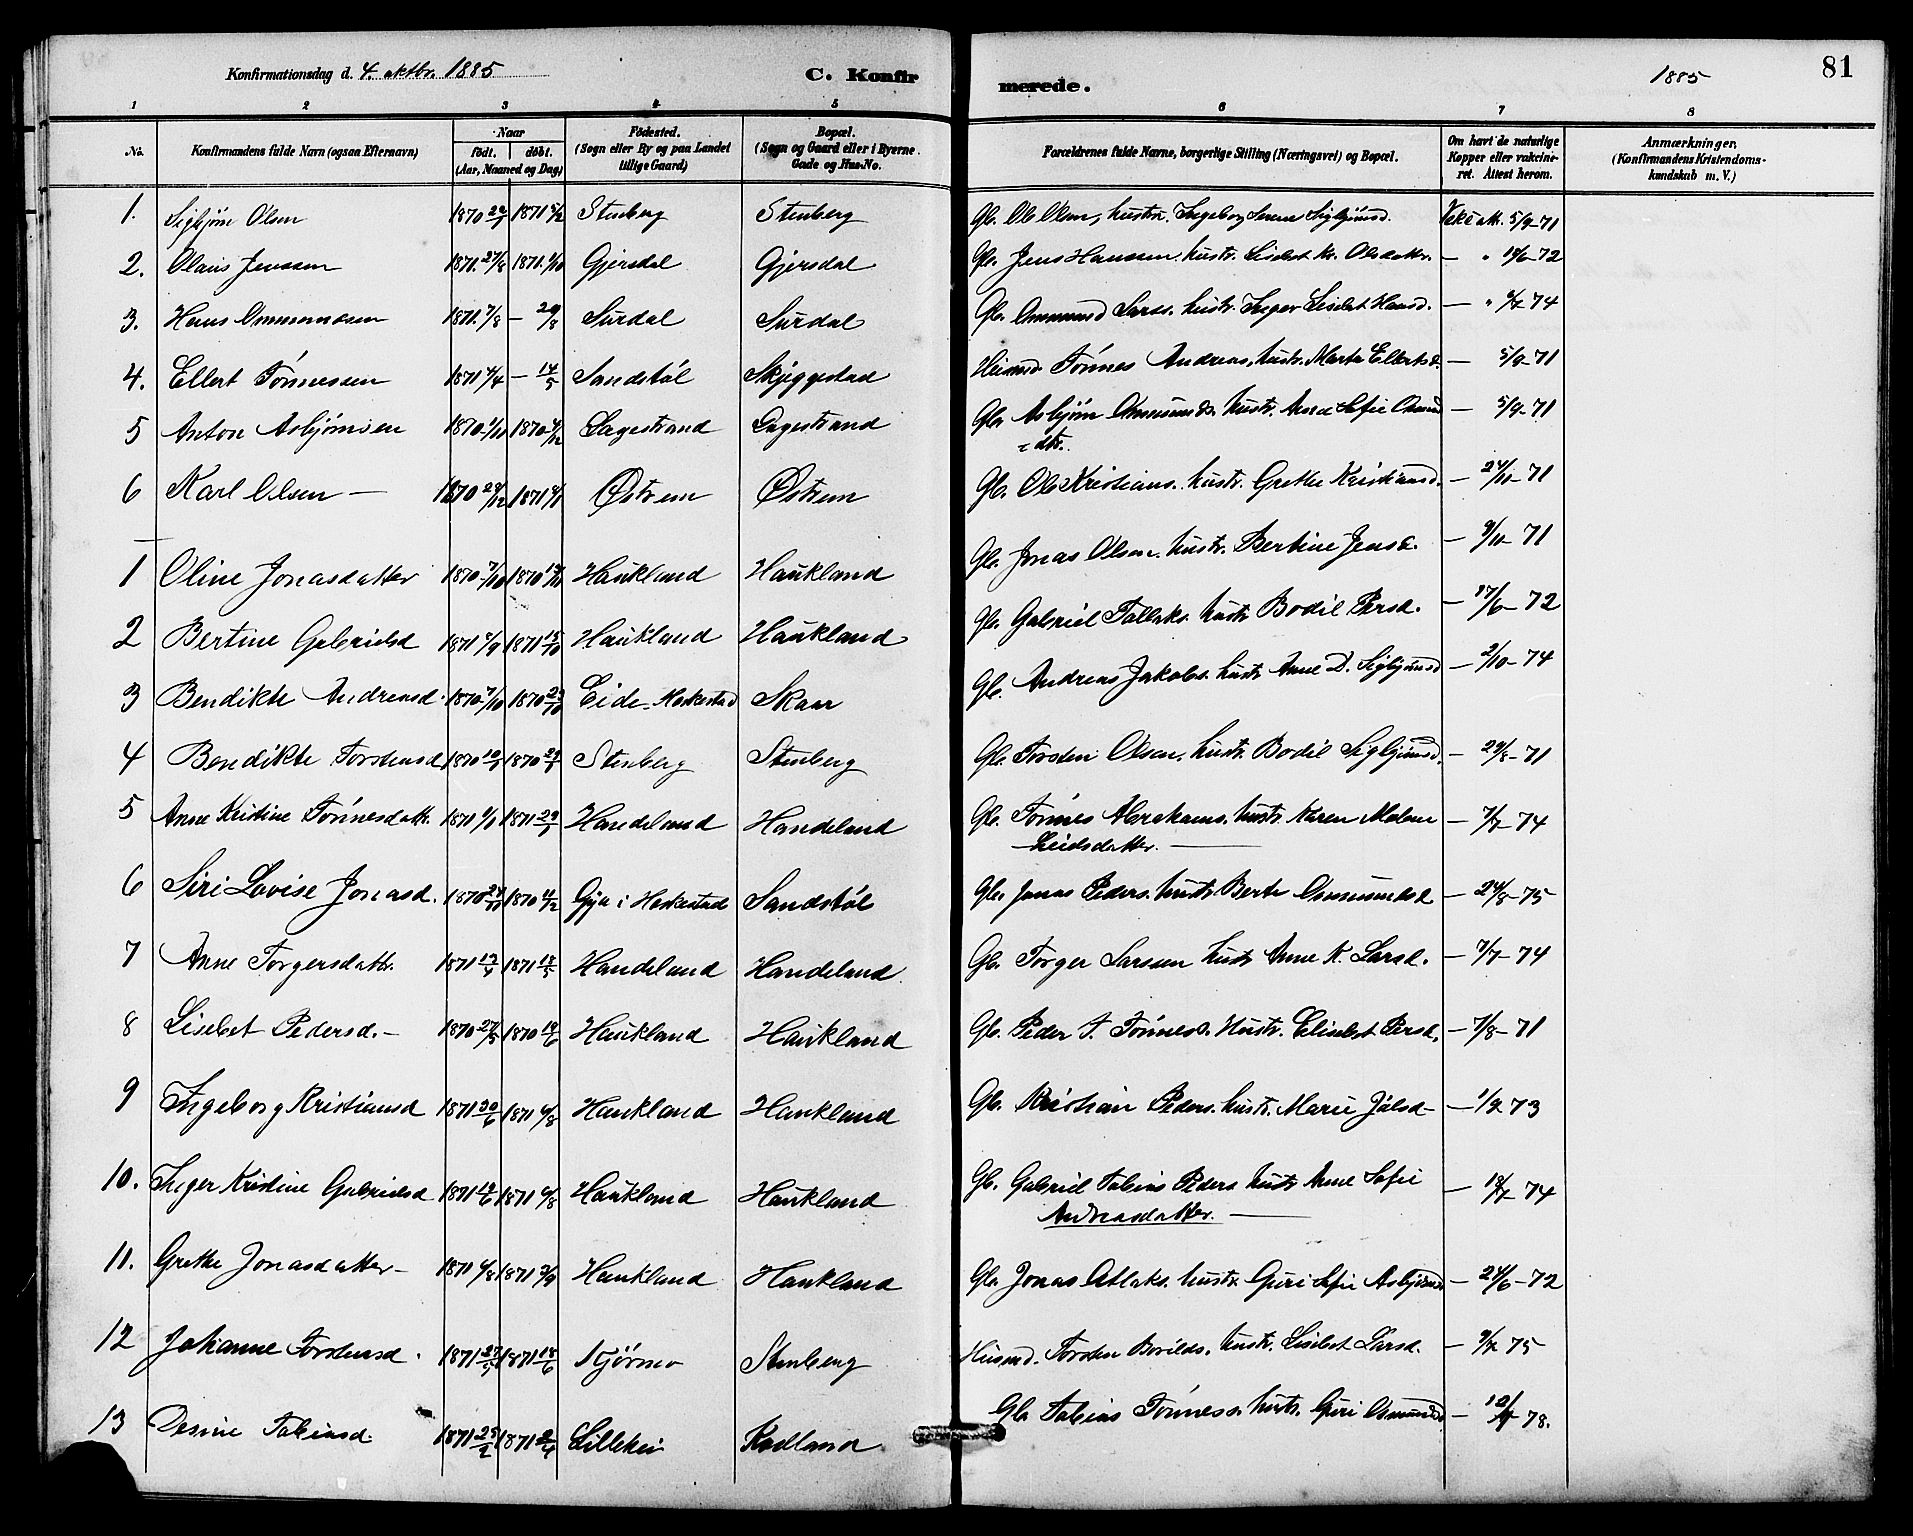 Konfirmationsdag d. 4. oktbr. 1885
C. Konfirmerede.
1885
81
1 2 3 4 5 6 7 8
No. Konfirmandens fulde Navn (ogsaa Efternavn) Naar født. døbt. (Aar, Maaned og Dag) Fødested. (Sogn eller By og paa Landet tillige Gaard) Bopæl. (Sogn og Gaard eller i Byerne Gade og Hus-No. Forældrenes fulde Navne, borgerlige Stilling (Næringsvei) og Bopæl. Om havt de naturlige Kopper eller vakcineret. Attest herom. Anmærkninger. (Konfirmandens Kristendomskundskab m. V.)
1. Sigbjørn Olsen 1870 1871 5/2 Stenberg Stenberg Gb. Ole Olsen, hustr. Ingeborg Serene Sigbjørnsd. 5/9-71
2. Olaus Jenssen 1871. 27/8 1871. 1/10 Gjersdal Gjersdal Gb. Jens Hanssen, hustr. Lisebet Kr. Olsdattr. — " 72
3. Hans Ommunnsen 1871. 7/8 — 20/8 Surdal Surdal Gb. Ommund Larss. hustr. Inger Lisebet Hansd. — " 74
4. Ellert Tönnessen 1871 4/4 — 14/5 Sandstøl Skjeggestad Husmd Tönnes Andreas, hustr. Marta Ellertsd. — 5/9-71
5 Anton Asbjørnsen 1870 1/11 1870 4/12 Lagestrand Lagestrand Gbr. Asbjørn Ommunds. hustr. Anne Sofie Osmundsdtr. — 5/9-71
6 Karl Olsen — 1870 29/12 1871 Østrem Østrem Gb. Ole Kristians. hustr. Grethe Kristiansd. — 24/11-71
1 Oline Jonasdatter 1870 7/10 1870 Haukland Haukland Gb. Jonas Olsen, hustr. Bertine Jensd. — 9/10-71
2 Bertine Gabrielsd 1871 8/9 1871 15/10 Haukland Haukland Gb. Gabriel Tallaks. hustr Bodil Persd. — 17/6-72
3 Bendikte Andreasd. 1870 7/10 1870 23/10 Eide, Heskestad Skaar Gb. Andreas Jakobs. hustr Anne D. Sigbjørnsd — 2/10-74
4 Bendikte Torstensd 1870 1870 Stenberg Stenberg Gb. Torsten Olsen, hustr. Bodil Sigbjørnsd. — 29/8-71
5 Anne Kristine Tönnesdattr. 1871 6/1 1871 29/1 Handeland Handeland Gb. Tönnes Abrahams. hustr. Karen Malene — 7/7-74
6 Siri Lovise Jonasd. 1870 1870 11/12 Gya i Heskestad Sandstøl Gb. Jonas Peders. hustr Berte Ommundsd — 24/8-75
7 Anne Torgersdattr. 1871 1871 18/5 Handeland Handeland Gb. Torger Larssen hustr Anne K. Larsd. — 7/7-74
8 Lisebet Pedersd. — 1870 27/5 1870 19/6 Haukland Haukland Gb. Peder T. Tönness. Hustr. Elisebet Persd. — 7/8-71
9 Ingeborg Kristiansd 1871 30/6 1871 6/8 Haukland Haukland Gb. Kristian Peders. hustr. Marie — 73
10. Inger Kristine Gabrielsd 1871 1871 6/8 Haukland Haukland Gb. Gabriel Tobias Peders hustr Anne Sofie Andreasdatter. — 74
11. Grethe Jonasdatter — 1871 6/8 1871 3/9 Haukland Haukland Gb. Jonas Atlaks. hustr Guri Sofie Asbjørnsd — 24/6-72
12 Johanne Torstensd. 1871 1871 18/6 Stenberg Husmd. Torsten hustr. Lisebet Larsd. — 75
13 Tobiasd. 1871 1871 Lillehei Kadland Gb Tobias Tönness. hustr. Guri Osmundsd — 78.